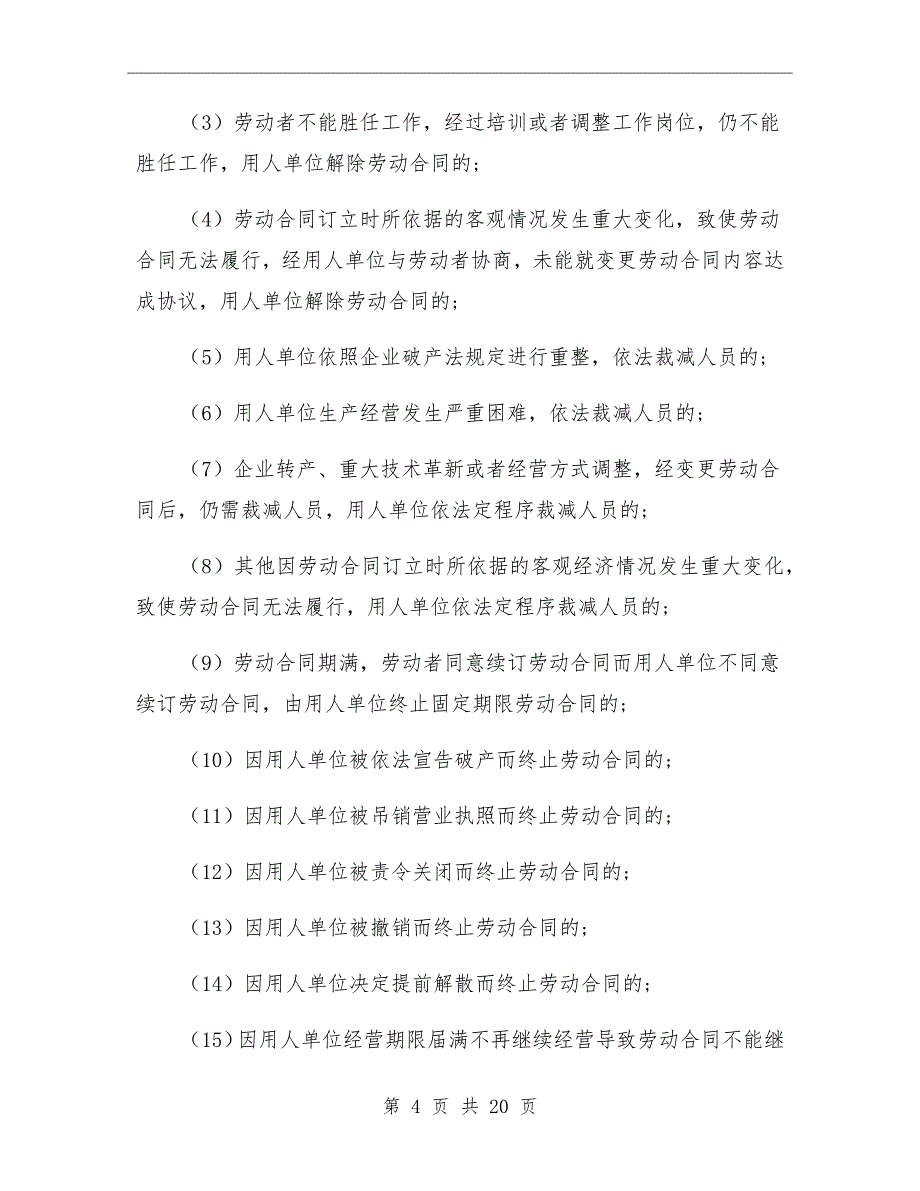 （3）劳动者不能胜任工作，经过培训或者调整工作岗位，仍不能
胜任工作，用人单位解除劳动合同的;
（4）劳动合同订立时所依据的客观情况发生重大变化，致使劳动
合同无法履行，经用人单位与劳动者协商，未能就变更劳动合同内容达
成协议，用人单位解除劳动合同的;
（5）用人单位依照企业破产法规定进行重整，依法裁减人员的;
（6）用人单位生产经营发生严重困难，依法裁减人员的;
（7）企业转产、重大技术革新或者经营方式调整，经变更劳动合
同后，仍需裁减人员，用人单位依法定程序裁减人员的;
（8）其他因劳动合同订立时所依据的客观经济情况发生重大变化，
致使劳动合同无法履行，用人单位依法定程序裁减人员的;
（9）劳动合同期满，劳动者同意续订劳动合同而用人单位不同意
续订劳动合同，由用人单位终止固定期限劳动合同的;
（10）因用人单位被依法宣告破产而终止劳动合同的;
（11）因用人单位被吊销营业执照而终止劳动合同的;
（12）因用人单位被责令关闭而终止劳动合同的;
（13）因用人单位被撤销而终止劳动合同的;
（14）因用人单位决定提前解散而终止劳动合同的;
（15）因用人单位经营期限届满不再继续经营导致劳动合同不能继
第 4 页 共 20 页